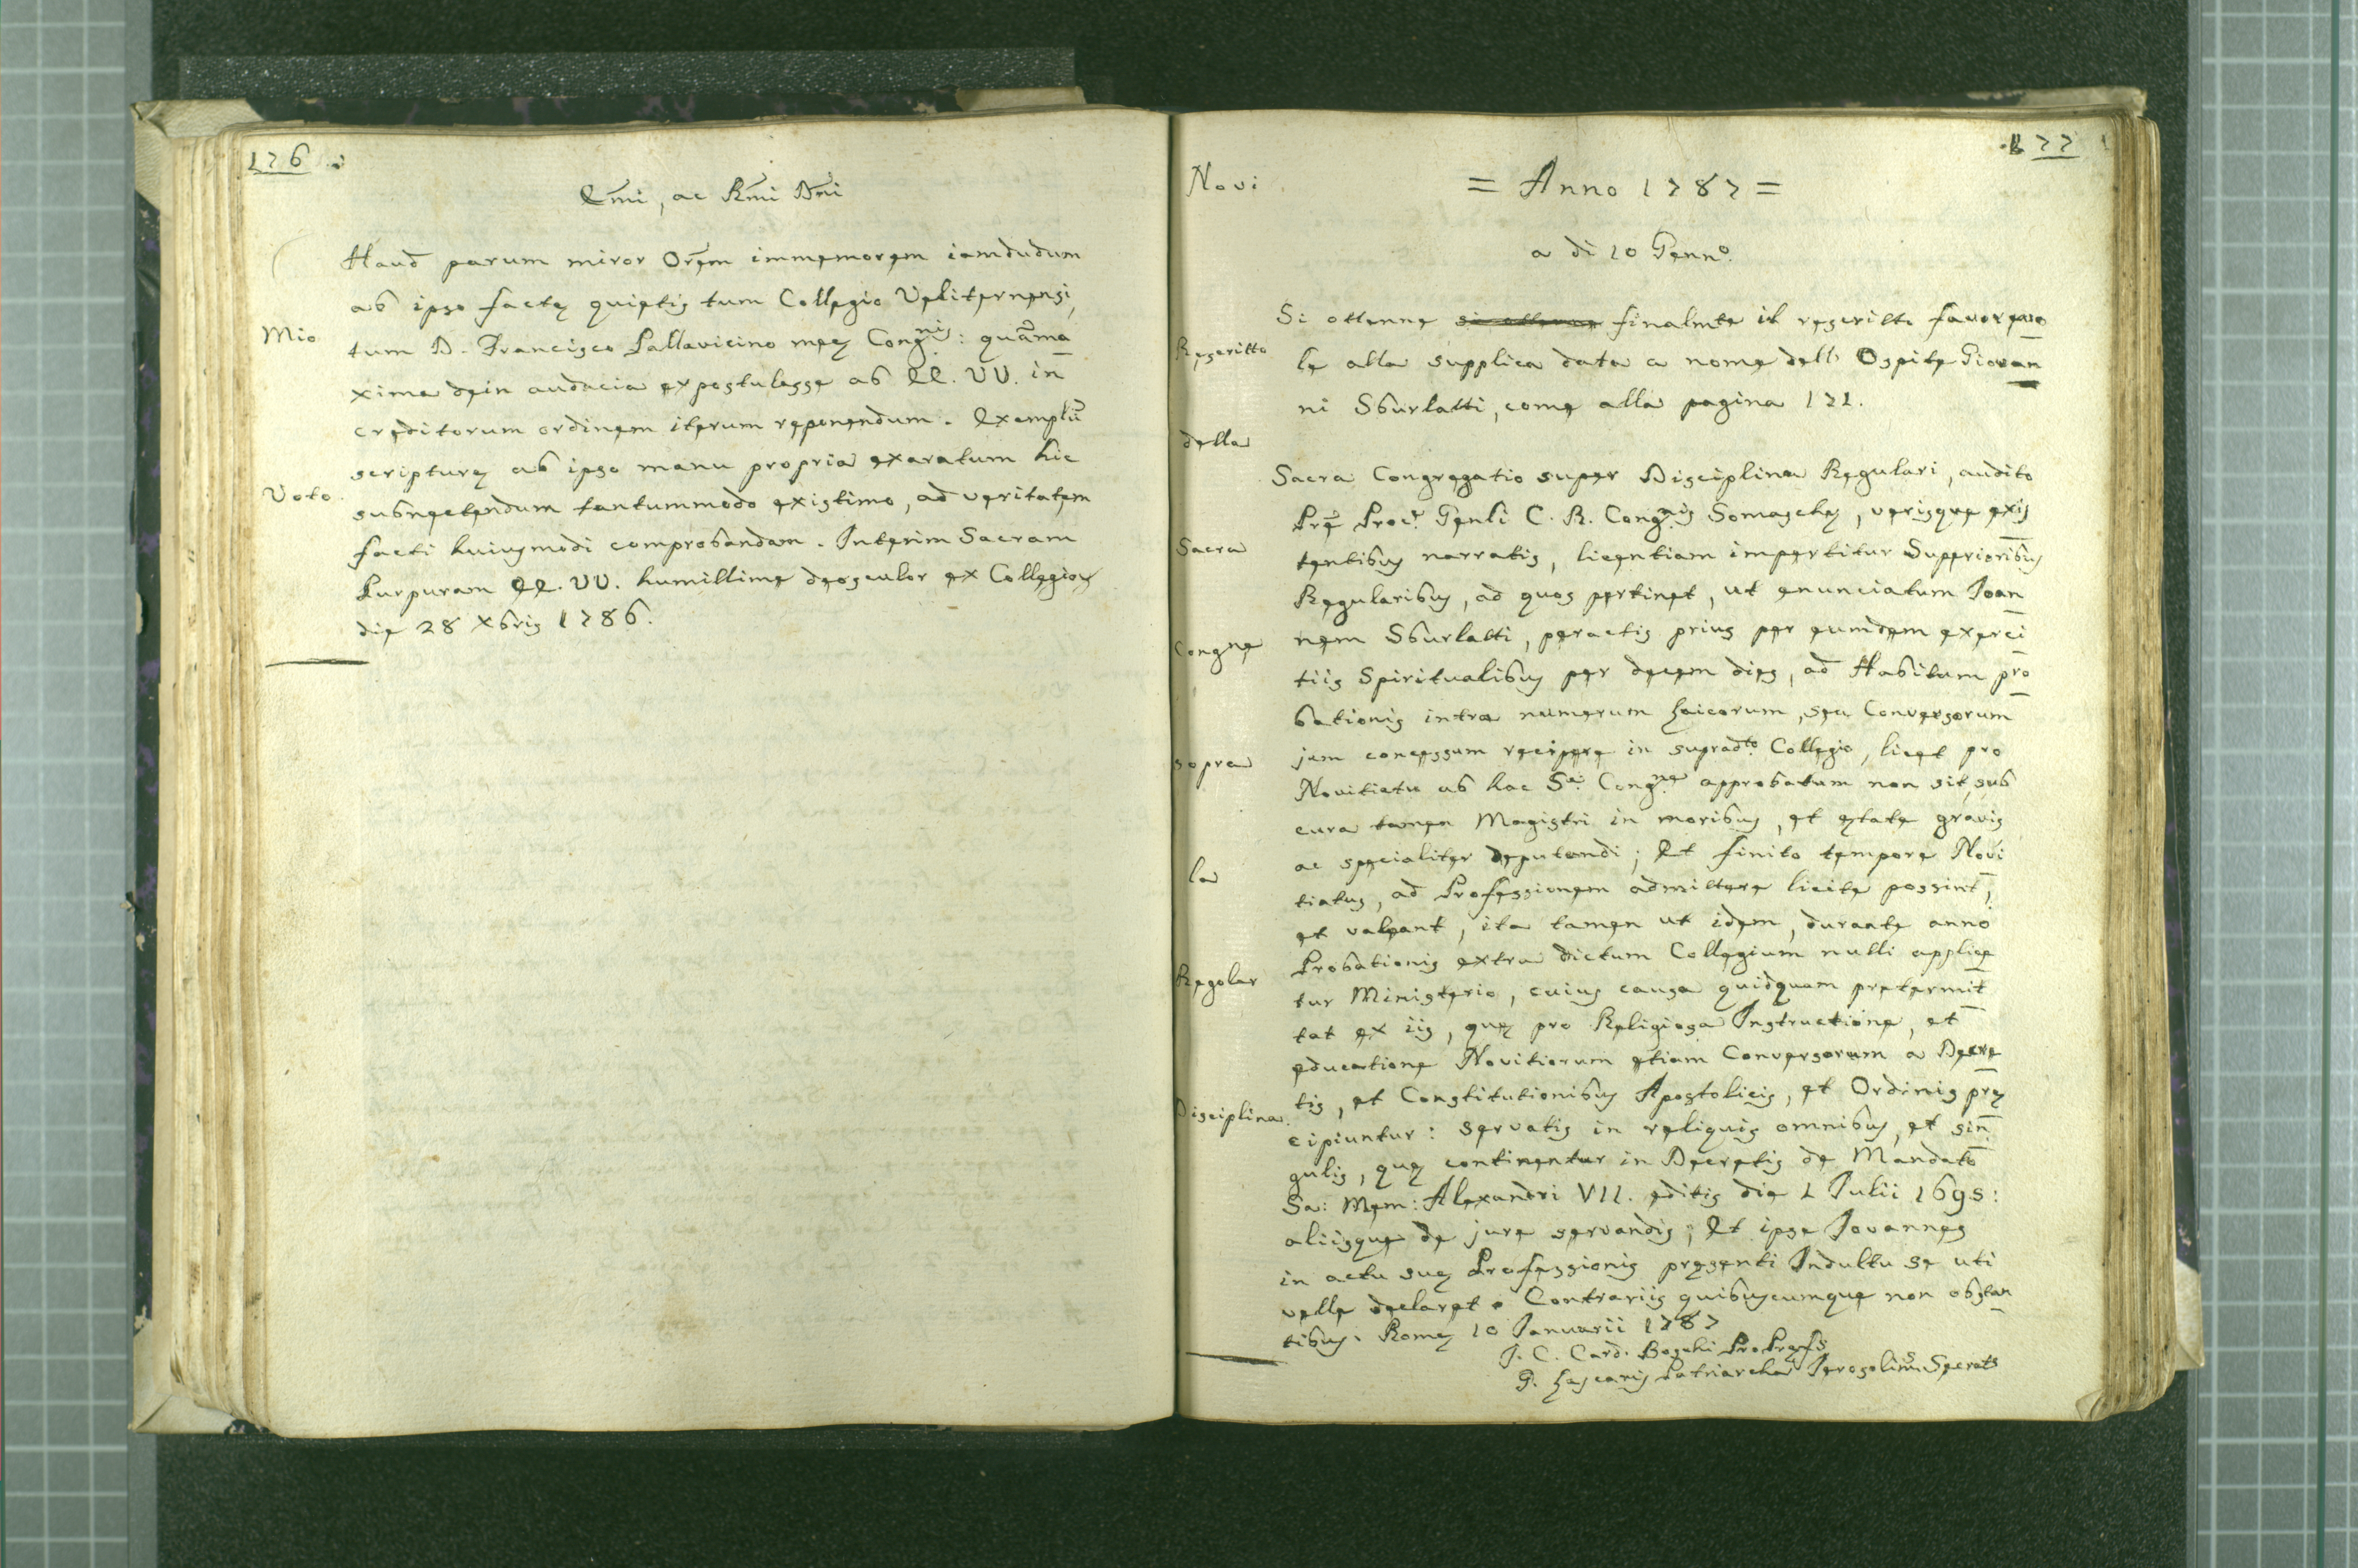 176
Emi, ac Rmi Dni
Haud parum miror Orem immemorem iamdudum
ab ipso factę quietis tum Collegio Veliternensi,
Mio
tum D. Francisco Pallavicino meę Congnis: quama
xima dein audacia expostulasse ab EE. VV. in
creditorum ordinem iterum reponendum. Exemplu
scripturę ab ipso manu propria exaratum hic
Voto
subnectendum tantummodo existimo, ad veritatem
facti huiusmodi comprobandam. Interim Sacram
Purpuram EE. VV. humillime deosculor ex Collegio
die 28 Xbris 1786.
177
Novi
= Anno 1787 =
a di 10 Genno.
Si ottenne si ottenne finalmte il rescritto favorevo
Rescritto
le alla supplica data a nome dell' Ospite Giovan
ni Sburlatti, come alla pagina 171.
della
Sacra Congregatio super Disciplina Regulari, audito
Pre Procr Genli C. R. Congnis Somaschę, verisque exis
Sacra
tentibus narratis, licentiam impertitur Superioribus
Regularibus, ad quos pertinet, ut enunciatum Joan
Congne
nem Sburlatti, peractis prius per eumdem exerci
tiis Spiritualibus per decem dies, ad Habitum pro
bationis intra numerum Laicorum, seu Conversorum
sopra
jam concessum recipere in supradto Collegio, licet pro
Novitiatu ab hac Sa. Congne approbatum non sit, sub
cura tamen Magistri in moribus, et ętate gravis
la
ac specialiter deputandi; Et finito tempore Novi
tiatus, ad Professionem admittere licite possint,
et valeant, ita tamen ut idem, durante anno
Regolar
Probationis extra dictum Collegium nulli applice
tur Ministerio, cuius causa quidquam pretermit
tat ex iis, quę pro Religiosa Instructione, et
educatione Novitiorum etiam Conversorum a Decre
Disciplina.
tis, et Constitutionibus Apostolicis, et Ordinis prę
cipiuntur: servatis in reliquis omnibus, et sin
gulis, quę continentur in Decretis de Mandato
Sa: Mem: Alexandri VII. editis die 1 Julii 1695:
aliisque de jure servandis; Et ipse Joannes
in actu suę Professionis pręsenti Indultu se uti
velle declaret. Contrariis quibuscumque non obstan
tibus. Romę 10 Januarii 1787
J. C. Card. Boschi ProPręfs
P. Lascaris Patriarcha Jerosolims Secrets